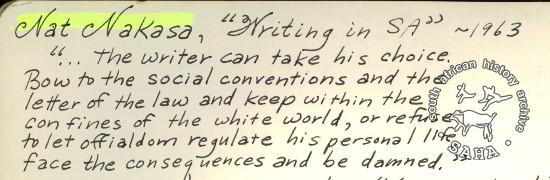 Nat Nakasa, "Writing in SA" ~1963
"... The writer can take his choice.
Bow to the social conventions and the
letter of the law and keep within the
confines of the white world, or refuse
to let offialdom regulate his personal life
face the consequences and be damned."
south african history archive
SAHA